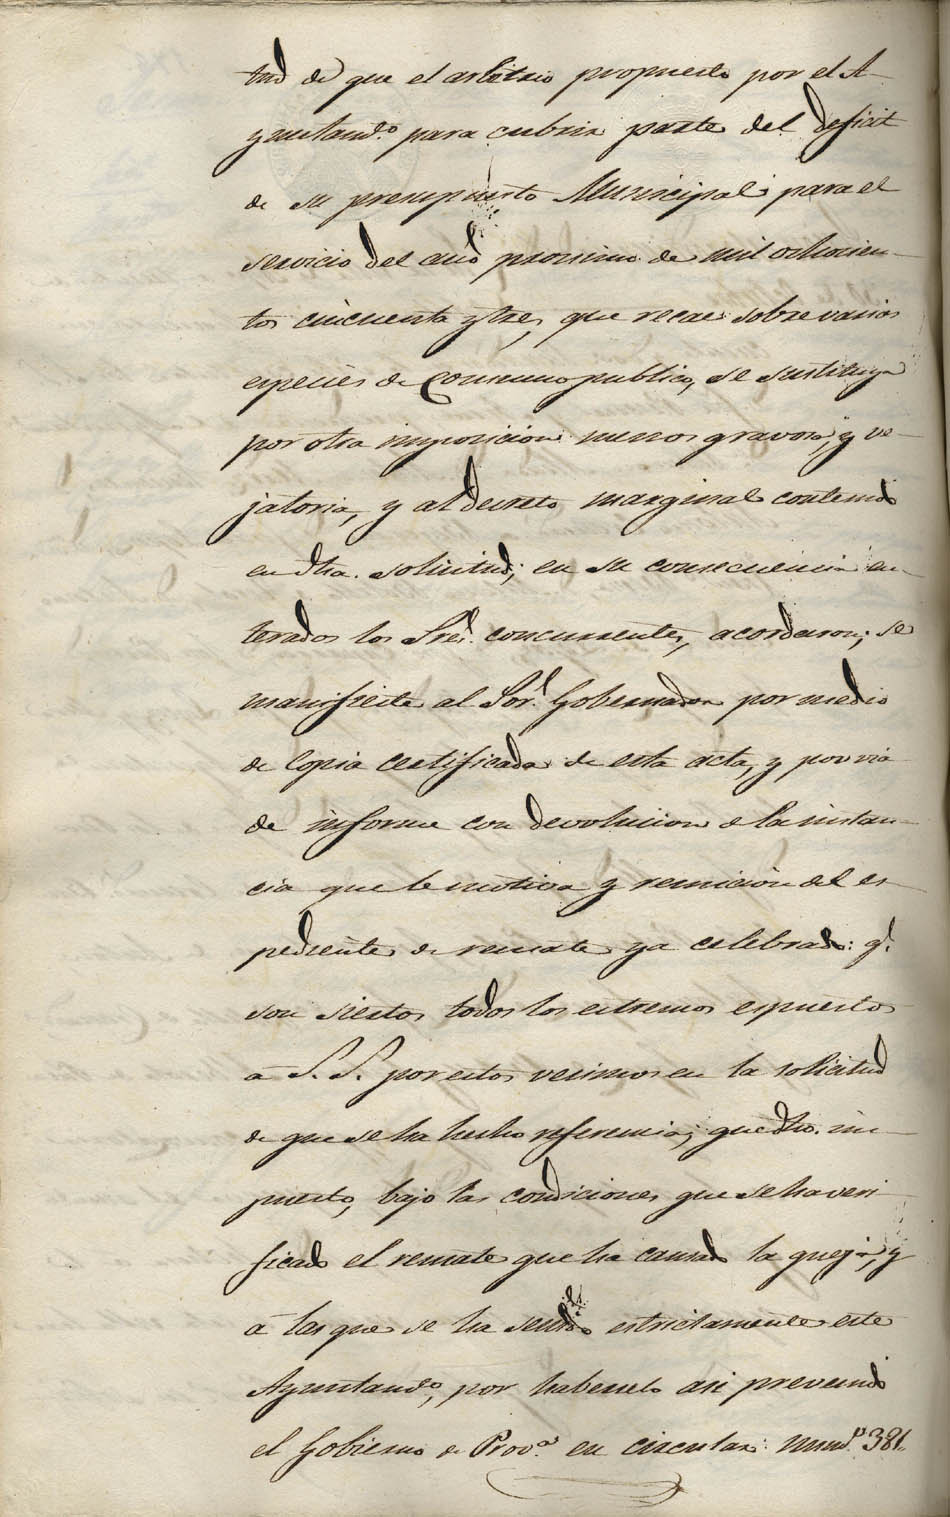 tud de que el arbitrio propuesto por el A-
yuntamᵗᵒ para cubrir parte del deficit
de su presupuesto Municipal para el
servicio del año procsimo de mil ochocien-
tos cincuenta y tres, que recae sobre varias
especies de Consumo publico, se sustituya
por otra imposicion menos gravosa, y ve-
jatoria, y al decreto marginal contenido
en dha. solicitud; en su consecuencia en-
terados los Sres. concurrentes, acordaron; se
manifieste al Sor. Gobernador por medio
de Copia certificada de esta acta, y por via
de informe con devolucion de la instan-
cia que le motiva y remision del es-
pediente de remate ya celebrado: qᵉ
son siertos todos los estremos espuestos
a S. S. por estos vecinos en la solicitud
de que se ha hecho referencia; que dho. im-
puesto, bajo las condiciones que se ha veri-
ficado el remate que ha causado la queja, y
a las que se ha señido estrictamente este
Ayuntamᵗᵒ, por haberselo asi prevenido
el Gobierno de Provᵃ en circular numᵒ 381.